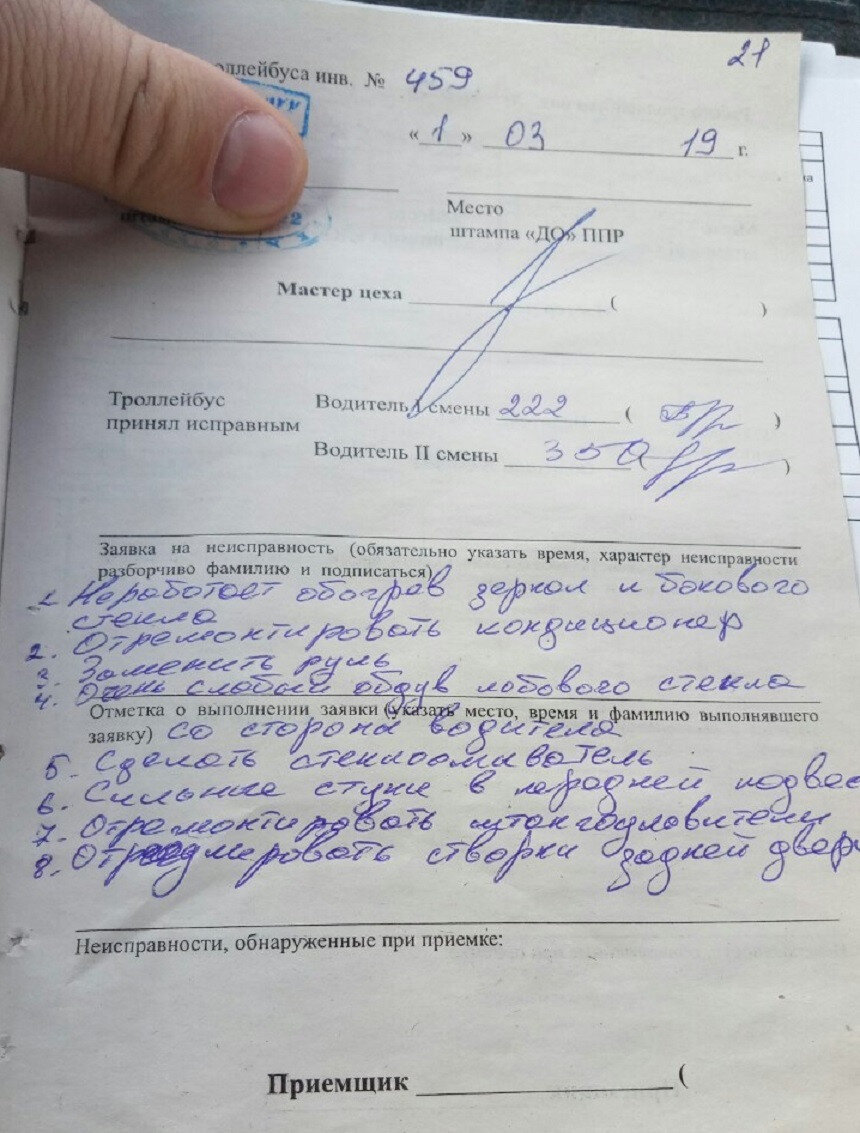 21
оллейбуса инв. № 459
«1» 03 19 г.
Место
штампа «ДО» ППР
Мастер цеха ( )
Троллейбус
принял исправным
Водитель I смены 222 ( )
Водитель II смены 350 )
Заявка на неисправность (обязательно указать время, характер неисправности
разборчиво фамилию и подписаться)
1. Неработает обогрев зеркал и бокового
стекла
2. Отремонтировать кондиционер
3. Заменить руль
4. Очень слабый обдув лобового стекла
Отметка о выполнении заявки (указать место, время и фамилию выполнявшего
заявку) со стороны водителя
5. Сделать стеклоомыватель
6. Сильные стуки в передней подвес
7. Отремонтировать штангоуловители
8. створки задней двери
Неисправности, обнаруженные при приемке:
Приемщик (